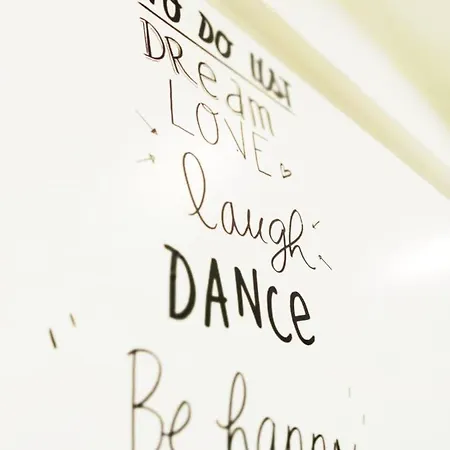 TO DO LIST
DReam
LOVE
laugh
DANCE
Be happy